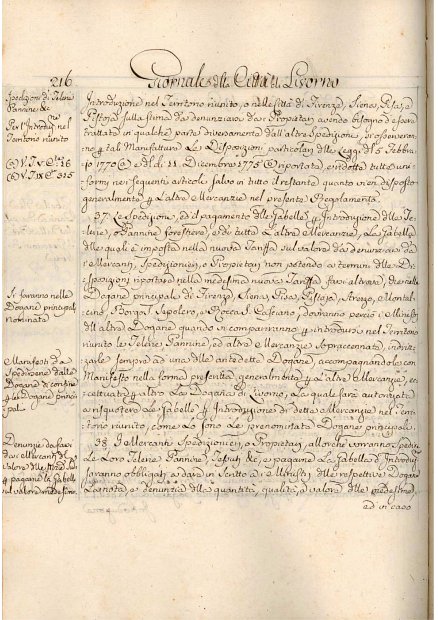 216
Giornale della Città di Livorno
Spedizioni di Telerie
Pannine &c
Per l'Introduz.ne nel
Territorio riunito
(a) V. T. V. C. 26
(b) V. T. IX C. 315
Introduzione nel Territorio riunito, o nelle Città di Firenze, Siena, Pisa, e
Pistoja sulla stima, o denunzia de i Proprietarj avendo bisogno d'essere
trattata in qualche parte diversamente dall'altre Spedizioni, si osserveranno
per tali Manifatture Le Disposizioni particolari delle Leggi de' 15 Febbra-
io 1770 (a) e del dì 11. Dicembre 1775 (b) riportate, e ridotte tutte uni-
formi nei seguenti articoli salvo in tutto il restante quanto vien disposto
generalmente per l'altre Mercanzie nel presente Regolamento.
37. Le Spedizione, ed il pagamento delle Gabelle per Introduzione delle Te-
lerie, e Pannine forestiere, e di tutte l'altre Mercanzie, La Gabella
delle quali è imposta nella nuova Tariffa sul valore da denunziarsi da
i Mercanti, Spedizionieri, o Proprietarj non potendo a termini delle Di-
sposizioni riportate nella medesima nuova Tariffa farsi altrove, che nelle
Dogane principali di Firenze, Siena, Pisa, Pistoja, Arezzo, Montal-
cino, Borgo S. Sepolcro, e Rocca S. Casciano, dovranno perciò i Ministri
dell'altre Dogane quando vi compariranno per introdursi nel Territorio
riunito le Telerie Pannine, ed altre Mercanzie sopraccennate, indiriz-
zarle sempre ad una delle antedette Dogane, accompagnandole con
Manifesto nella forma prescritta generalmente per l'altre Mercanzie, ec-
cettuata per altro La Dogana di Livorno, La quale sarà autorizzata
a riscuotere Le Gabelle per Introduzione di dette Mercanzie nel Terri-
torio riunito, come Lo sono Le prenominate Dogane principali.
38. I Mercanti Spedizionieri, o Proprietarj, allorchè vorranno spedire
Le Loro Telerie Pannine, Tessuti &c, e pagarne La Gabella d'Introduz.ne
saranno obbligati a dare in scritto a i Ministri delle respettive Dogane
La nota, e denunzia della quantità, qualità, e valore delle predette,
ed in caso
Si faranno nelle
Dogane principali
nominate
Manifesti da
Spedirsene dalle
Dogane di confine
per le Dogane princi-
pali.
Denunzie da farsi
da i Mercanti del
valore delle
per pagare la gabella
sul valore medesimo.